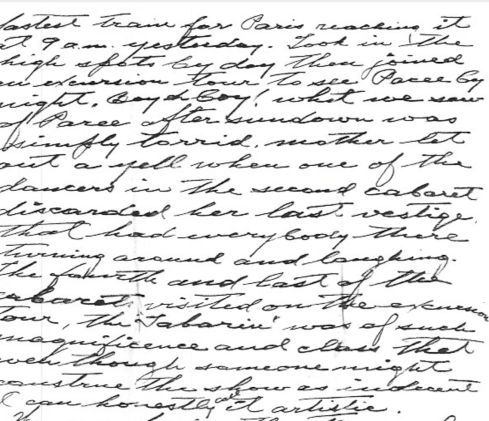 fastest train for Paris reaching it
at 9 a.m. yesterday. Took in the
high spots by day then joined
an excursion tour to see Paree by
night. Boy oh Boy, what we saw
of Paree after sundown was
simply torrid. Mother let
out a yell when one of the
dancers in the second cabaret
discarded her last vestige.
That had everybody there
turning around and laughing.
The fourth and last of the
cabarets visited on the excursion
tour, the "Tabarin" was of such
magnificence and class that
even though someone might
construe the show as indecent
I can honestly call it artistic.